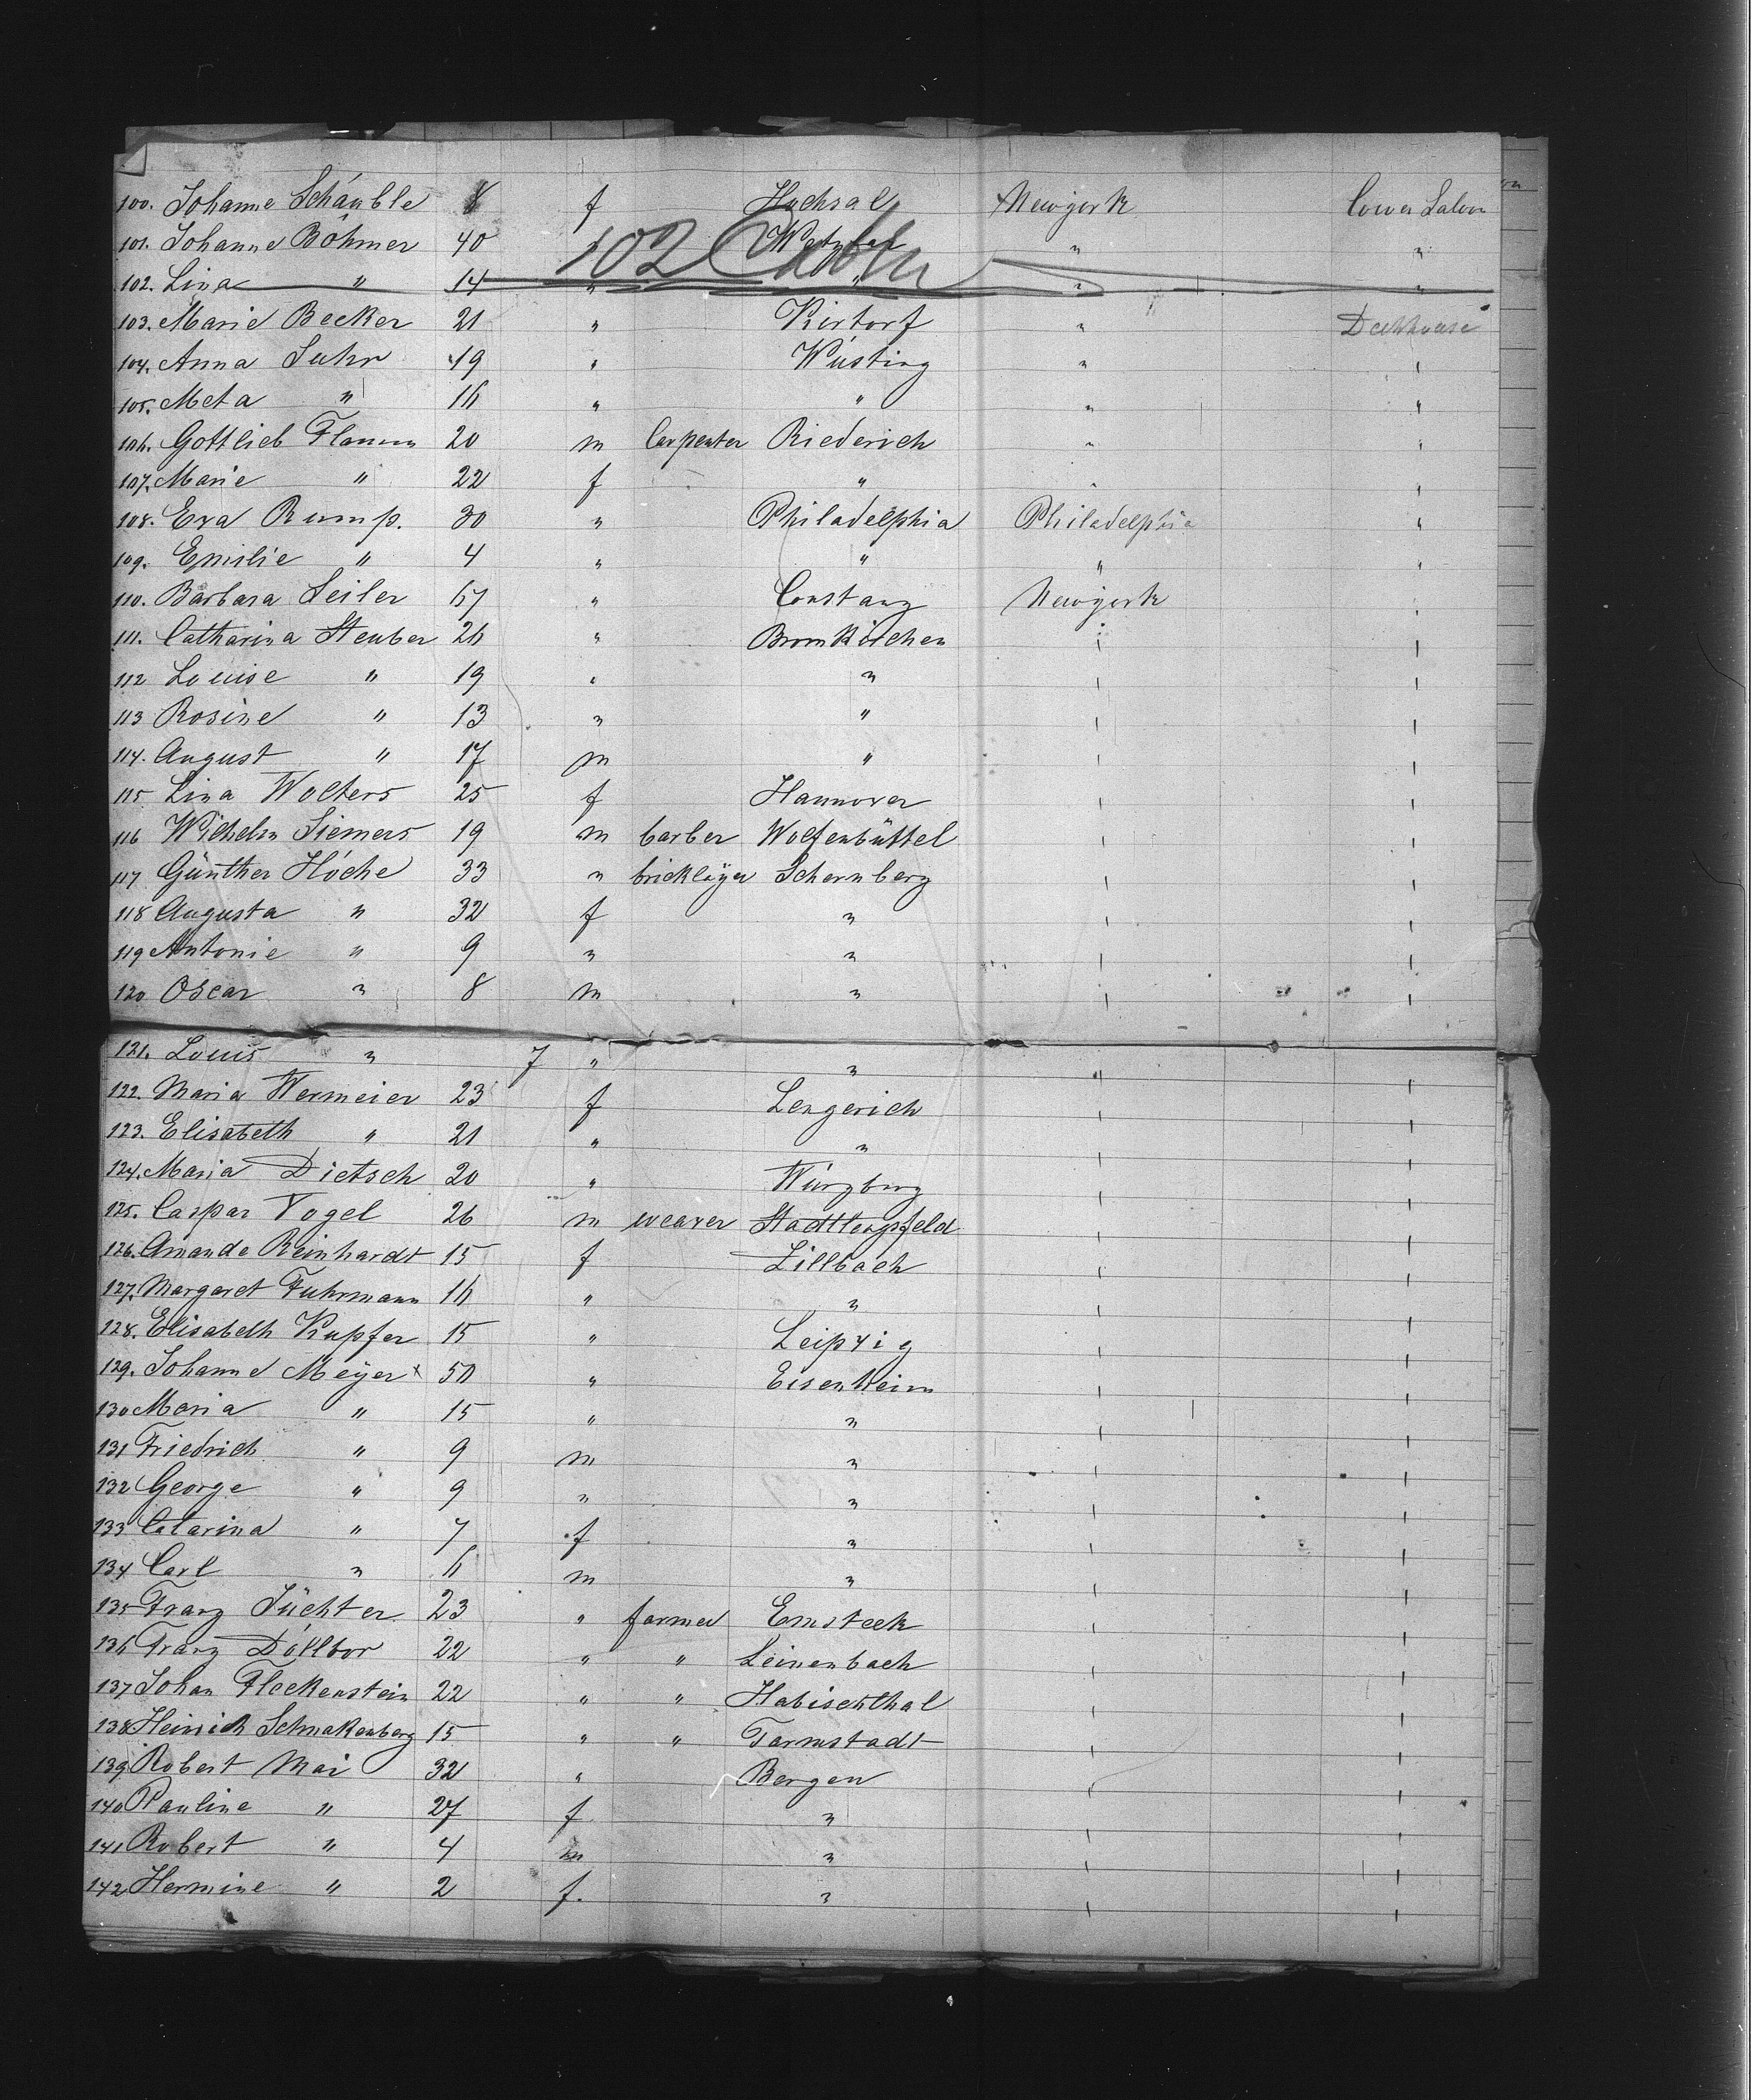 100. Johanne Schäuble 8 f Hochsal Newyork Lower Saloon
101. Johanne Böhmer 40 " "
102 Cabin
102. Lina " 14 " " " "
103. Marie Becker 21 " Kirtorf " Deckhouse
104. Anna Suhr 19 " Wüsting " "
105. Meta " 16 " " " "
106. Gottlieb Flamm 20 m Carpenter Riederich " "
107. Marie " 22 f " " "
108. Eva Rump. 30 " Philadelphia Philadelphia "
109. Emilie " 4 " " " "
110. Barbara Seiler 67 " Constanz Newyork "
111. Catharina Steuber 26 " Bromkirchen " "
112 Louise " 19 " " " "
113 Rosine " 13 " " " "
114. August " 17 m " " "
115 Lina Wolters 25 f Hannover " "
116 Wilhelm Siemers 19 m barber Wolfenbüttel " "
117 Günther Höche 33 " bricklayer Schernberg " "
118 Augusta " 32 f " " "
119 Antonie " 9 " " " "
120 Oscar " 8 m " " "
121. Louis " 7 " " " "
122. Maria Wermeier 23 f Lengerich " "
123. Elisabeth " 21 " " " "
124. Maria Dietsch 20 " Würzburg " "
125. Caspar Vogel 26 m weaver Stadtlengsfeld " "
126. Amande Reinhardt 15 f Zillbach " "
127. Margaret Fuhrmann 16 " " " "
128. Elisabeth Kupfer 15 " Leipzig " "
129. Johanne Meyer x 50 " Eisenheim " "
130 Maria " 15 " " " "
131 Friedrich " 9 m " " "
132 George " 9 " " " "
133 Catarina " 7 f " " "
134 Carl " 6 m " " "
135 Franz Süchter 23 " farmer Emsteek " "
136 Franz Döllbor 22 " " Leinenbach " "
137 Johan Fleckenstein 22 " " Habischthal " "
138 Heinrich Schnakenberg 15 " " Tarmstadt " "
139 Robert Mai 32 " Bergen " "
140 Pauline " 27 f " " "
141 Robert " 4 m " " "
142 Hermine " 2 f. " " "